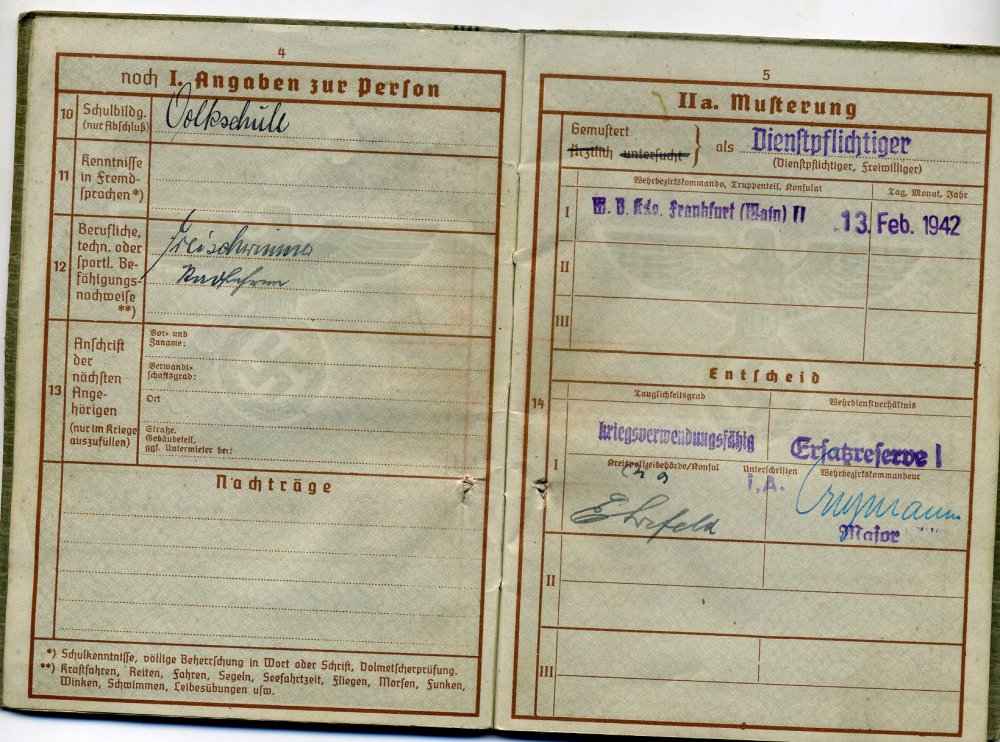 4
noch I. Angaben zur Person
10
Schulbildg.
(nur Abschluß)
Volkschule
11
Kenntnisse
in Fremd-
sprachen *)
12
Berufliche,
techn. oder
sportl. Be-
fähigungs-
nachweise
**)
Freischwimmer
Radfahren
13
Anschrift
der
nächsten
Ange-
hörigen
(nur im Kriege
auszufüllen)
Vor- und
Zuname:
Verwandt-
schaftsgrad:
Ort
Straße,
Gebäudeteil,
ggf. Untermieter bei:
Nachträge
*) Schulkenntnisse, völlige Beherrschung in Wort oder Schrift, Dolmetscherprüfung.
**) Kraftfahren, Reiten, Fahren, Segeln, Seefahrtzeit, Fliegen, Morsen, Funken,
Winken, Schwimmen, Leibesübungen usw.
5
IIa. Musterung
Gemustert
ärztlich untersucht
als Dienstpflichtiger
(Dienstpflichtiger, Freiwilliger)
Wehrbezirkskommando, Truppenteil, Konsulat
Tag, Monat, Jahr
I
W. B. Kdo. Frankfurt (Main) II
13. Feb. 1942
II
III
Entscheid
14
Tauglichkeitsgrad
Wehrdienstverhältnis
I
kriegsverwendungsfähig
Ersatzreserve I
Kreispolizeibehörde/Konsul
Unterschriften
Wehrbezirkskommandeur
i.A.
Major
II
III